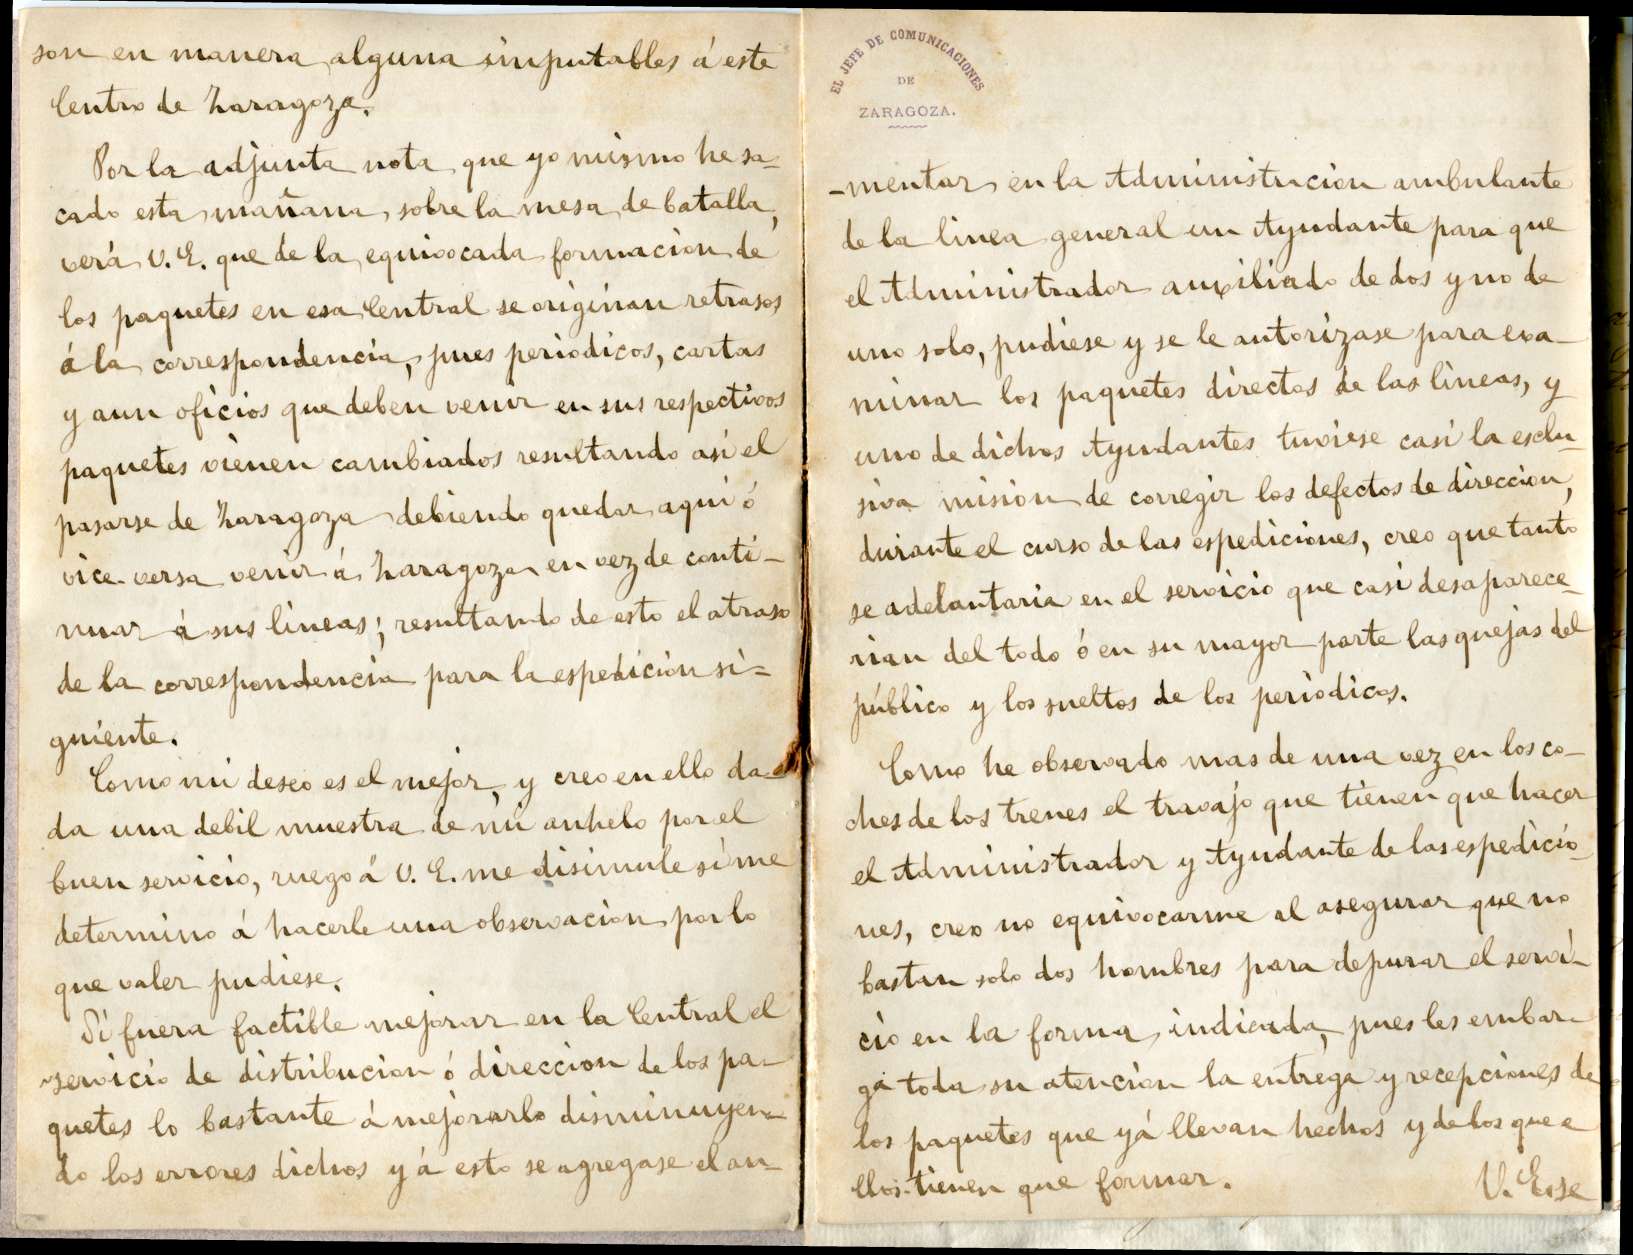 son en manera alguna imputables á este
Centro de Zaragoza.
Por la adjunta nota que yo mismo he sa-
cado esta mañana, sobre la mesa de batalla,
verá V. E. que de la equivocada formacion de
los paquetes en esa Central se originan retrasos
á la correspondencia, pues periodicos, cartas
y aun oficios que deben venir en sus respectivos
paquetes vienen cambiados resultando asi el
pasarse de Zaragoza debiendo quedar aqui ó
vice-versa venir á Zaragoza en vez de conti-
nuar á sus lineas; resultando de esto el atraso
de la correspondencia para la espedicion si-
guiente.
Como mi deseo es el mejor, y creo en ello da
da una debil muestra de mi anhelo por el
buen servicio, ruego á V. E. me disimule si me
determino á hacerle una observacion por lo
que valer pudiese.
Si fuera factible mejorar en la Central el
servicio de distribucion ó direccion de los pa-
quetes lo bastante á mejorarlo disminuyen-
do los errores dichos y á esto se agregase el au-
EL JEFE DE COMUNICACIONES
DE
ZARAGOZA.
-mentar en la Administracion ambulante
de la linea general un Ayudante para que
el Administrador auxiliado de dos y no de
uno solo, pudiese y se le autorizase para exa-
minar los paquetes directos de las lineas, y
uno de dichos Ayudantes tuviese casi la esclu-
siva mision de corregir los defectos de direccion,
durante el curso de las espediciones, creo que tanto
se adelantaria en el servicio que casi desaparece-
rian del todo ó en su mayor parte las quejas del
público y los sueltos de los periodicos.
Como he observado mas de una vez en los co-
ches de los trenes el travajo que tienen que hacer
el Administrador y Ayudante de las espedicio-
nes, creo no equivocarme al asegurar que no
bastan solo dos hombres para depurar el servi-
cio en la forma indicada, pues les embar-
ga toda su atencion la entrega y recepciones de
los paquetes que yá llevan hechos y de los que e
llos tienen que formar.
V. E. se